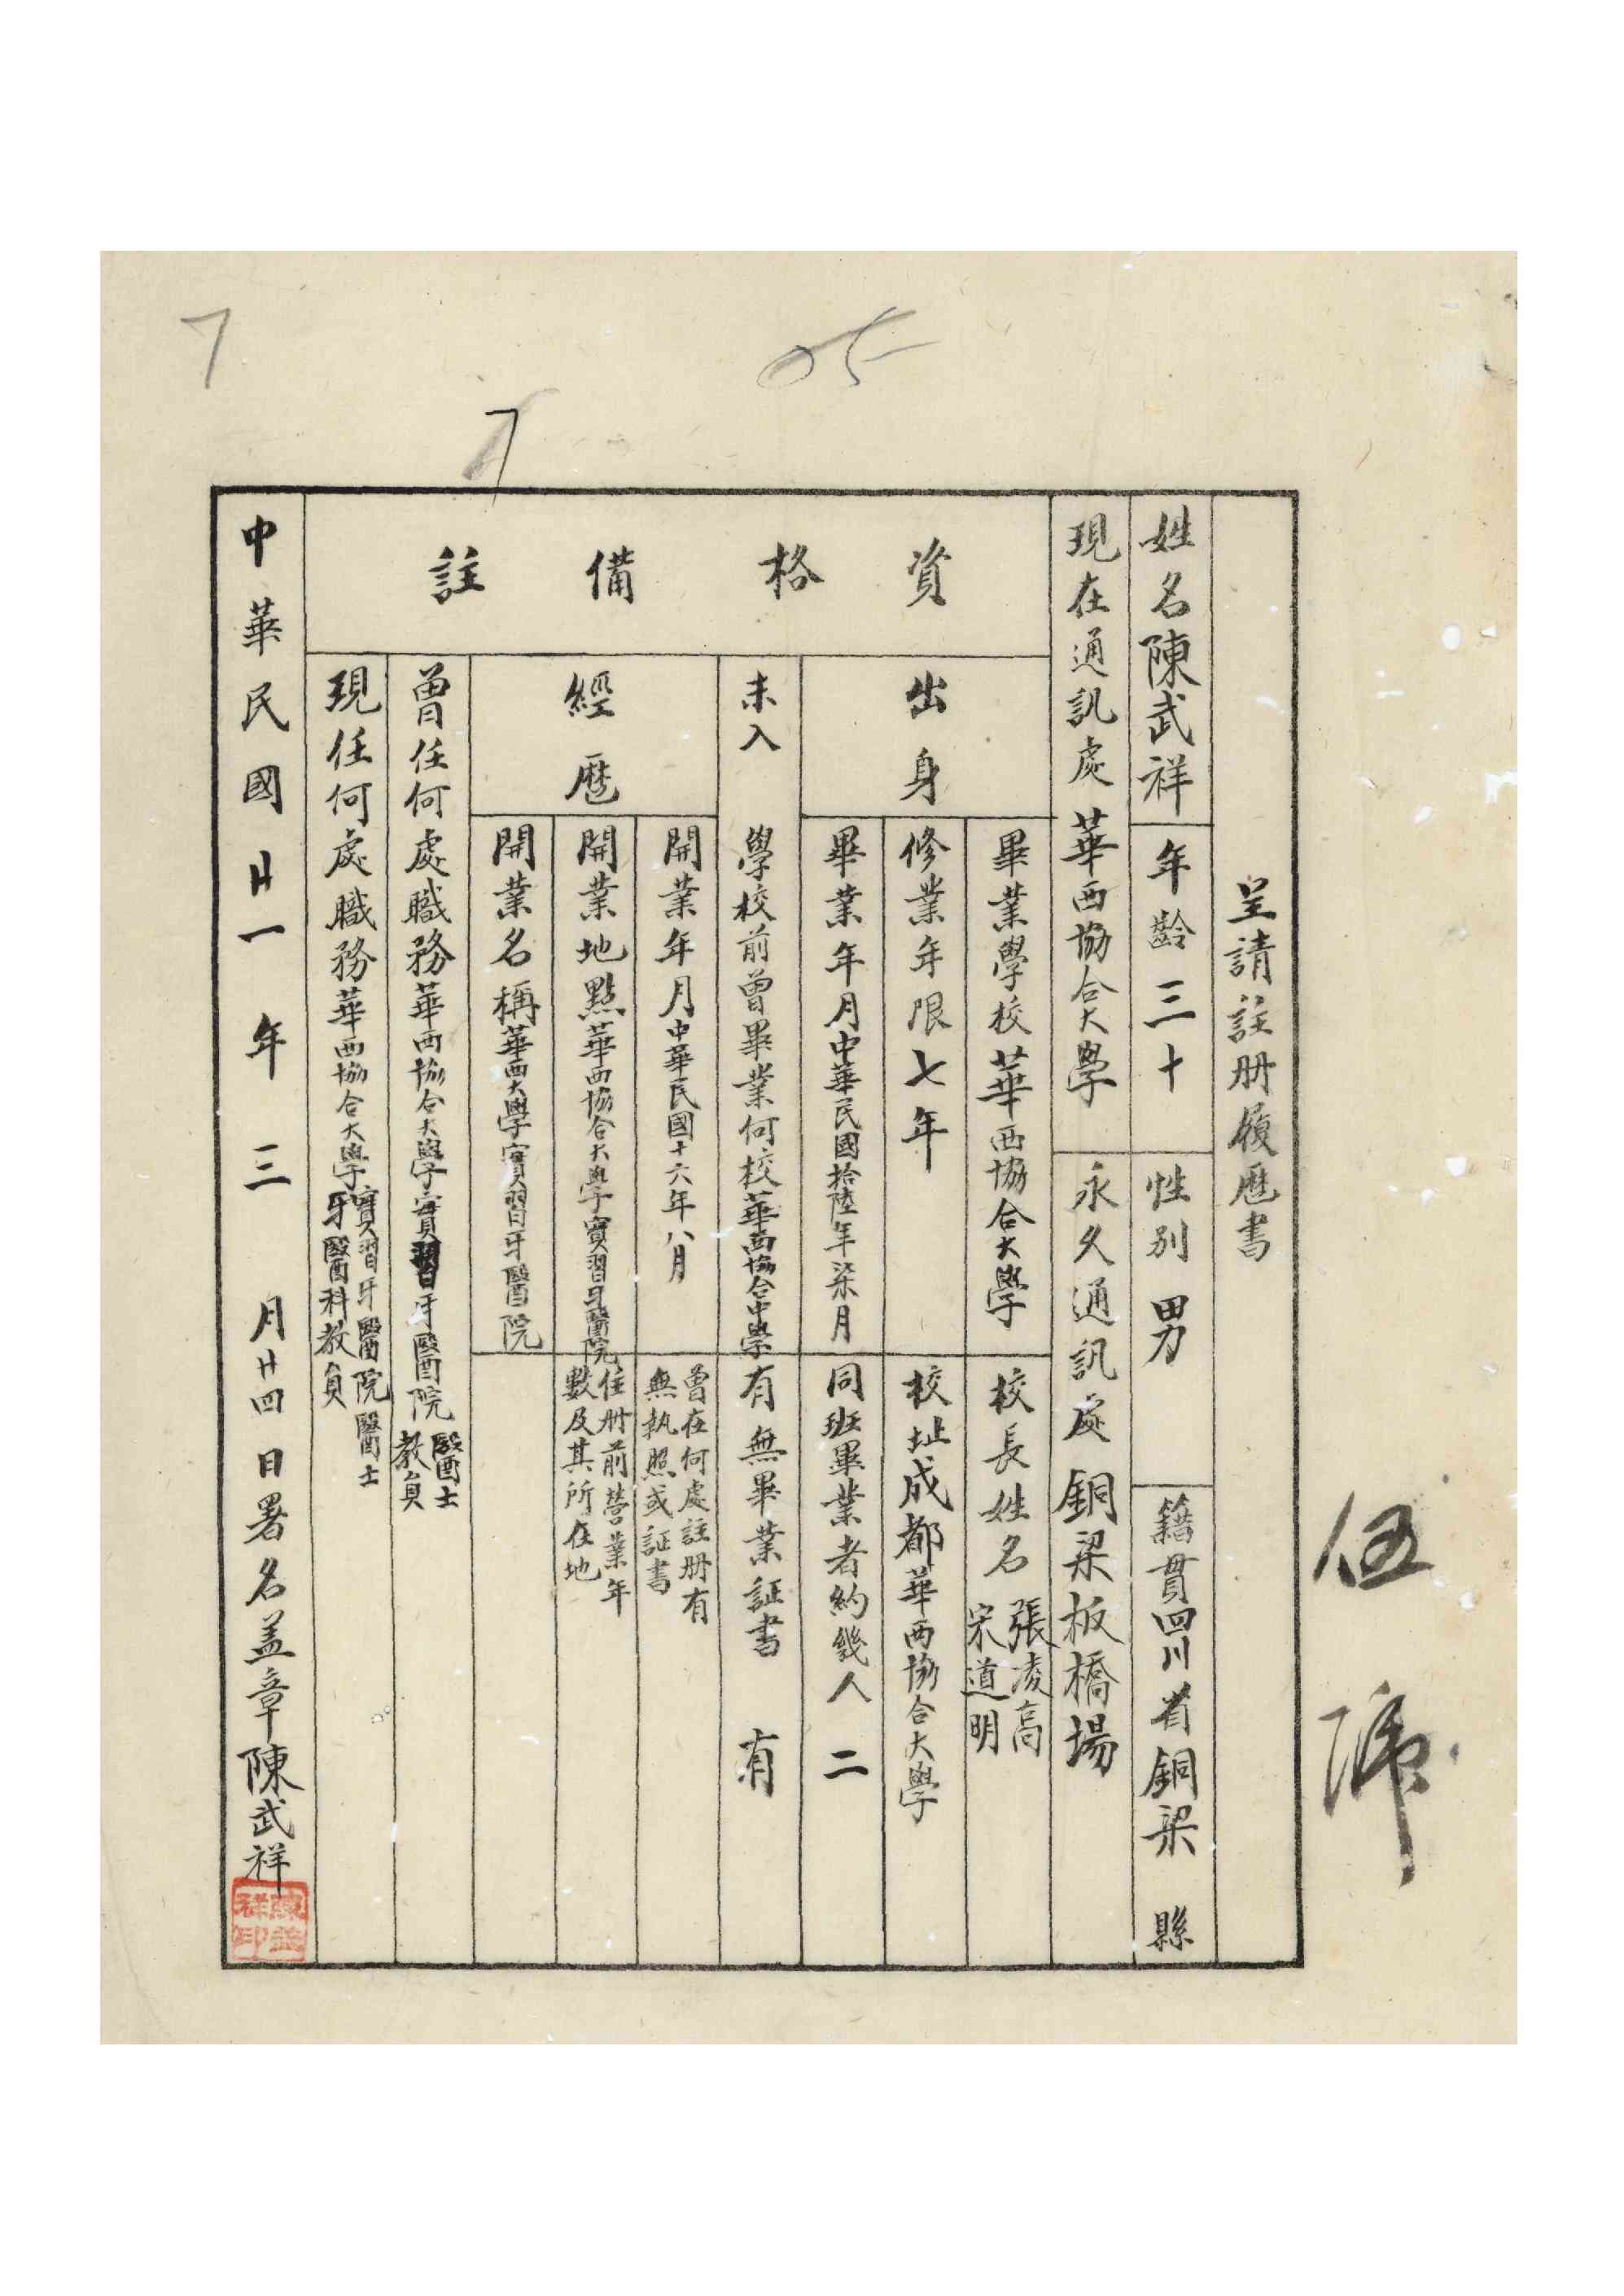 伍號
呈請註册履歷書
姓名陳武祥
年齡三十
性別 男
籍貫四川省銅梁縣
現在通訊處 華西協合大學
永久通訊處 銅梁板橋場
資格備註
出身
畢業學校華西協合大學
校長姓名 張凌高
宋道明
修業年限七年
校址成都華西協合大學
畢業年月中華民國拾陸年柒月
同班畢業者約幾人 二
未入學校前曾畢業何校華西協合中學
有無畢業証書 有
經歷
開業年月中華民國十六年八月
曾在何處註册有
無執照或証書
開業地點華西協合大學實習牙醫院
住册前營業年
數及其所在地
開業名稱華西大學實習牙醫院
曾任何處職務華西協合大學實習牙醫院 醫士
教員
現任何處職務華西協合大學 實習牙醫院醫士
牙醫科教員
中華民國廿一年三月廿四日署名盖章陳武祥
陳武祥印
05
7
7